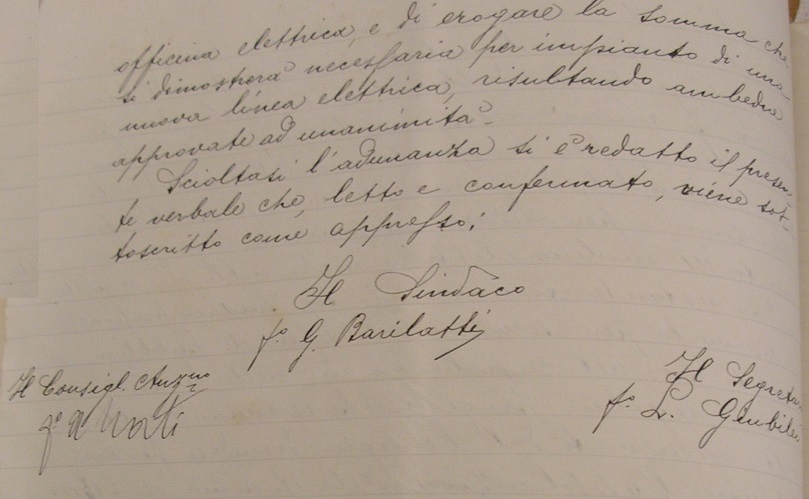 officina elettrica, e di erogare la somma che
si dimostrerà necessaria per impianto di una
nuova linea elettrica, risultando ambedue
approvate ad unanimità.
Scioltasi l'adunanza si è redatto il presen-
te verbale che, letto e confermato, viene sot-
toscritto come appresso:
Il Sindaco
fo G. Barilatti
Il Consigl. Anzno
fo
Il Segretar
fo L. Giubilei